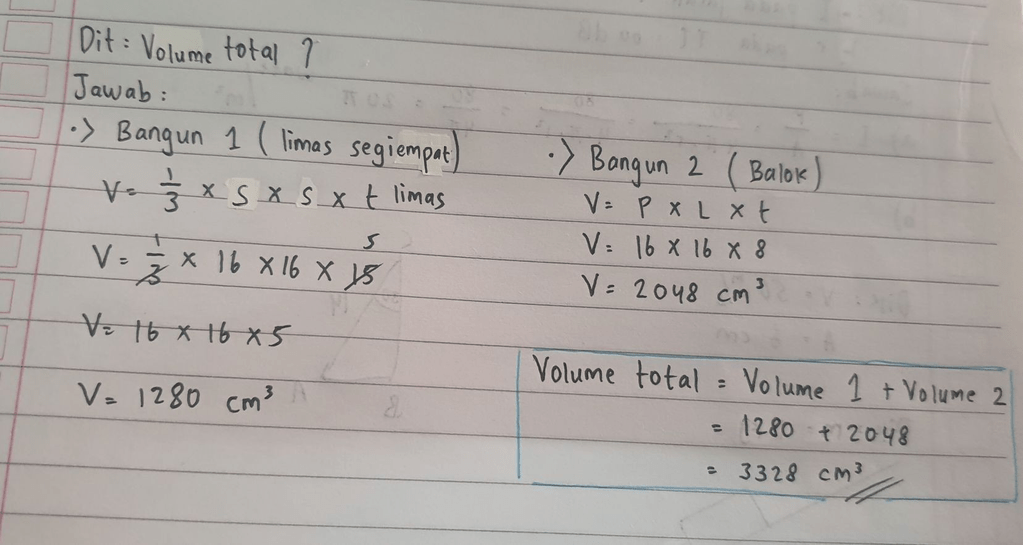 Dit : Volume total ?
Jawab :
·> Bangun 1 ( limas segiempat)
V= 1/3 x s x s x t limas
V= 1/3 x 16 x 16 x 15 5
V= 16 x 16 x 5
V= 1280 cm³
·> Bangun 2 ( Balok)
V= P x L x t
V= 16 x 16 x 8
V= 2048 cm³
Volume total = Volume 1 + Volume 2
= 1280 + 2048
= 3328 cm³